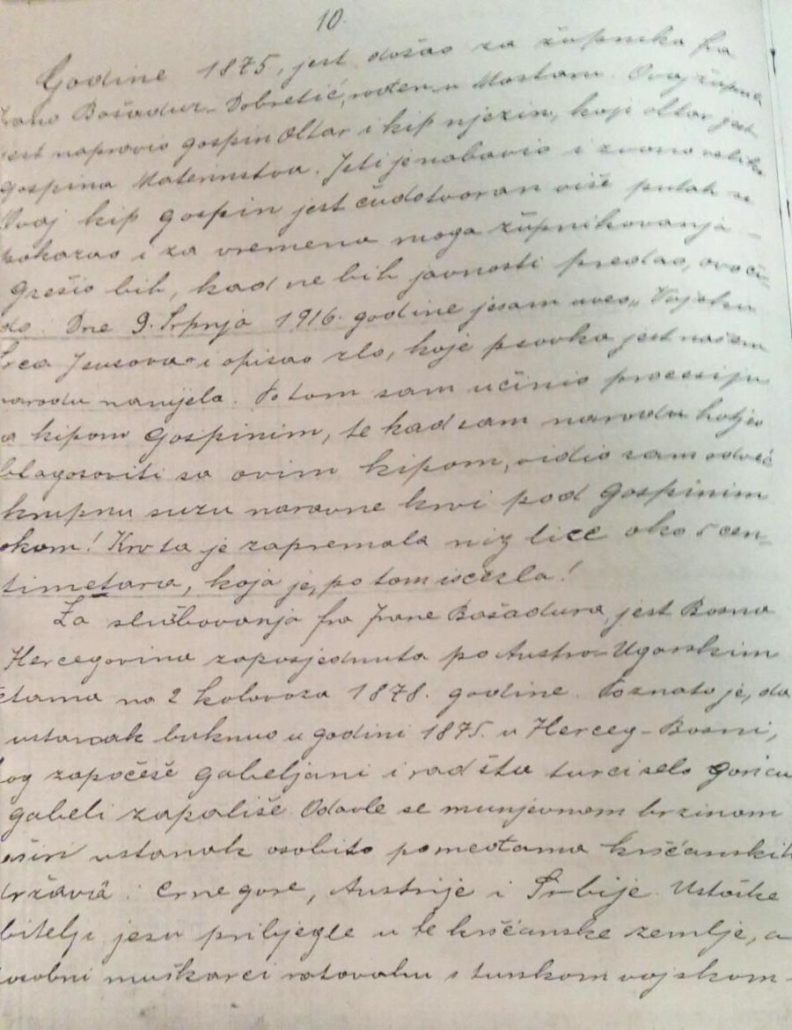 10.
Godine 1875, jest došao za župnika fra
Frano Bošadur-Dobretić, rođen u Mostaru. Ovaj župnik
jest napravio gospin Oltar i kip njezin, koji oltar jest
gospina Maternstva. Isti je nabavio i zvono veliko
Ovaj kip gospin jest čudotvoran više putah se
pokazao i za vremena moga župnikovanja -
grešio bih, kad ne bih javnosti predao, ovo ču-
do. Dne 9. Srpnja 1916. godine jesam uveo „Vojsku
Srca Isusova" i opisao zlo, koje psovka jest našem
narodu nanijela. Potom sam učinio procesiju
sa kipom Gospinim, te kad sam narodu hotjeo
blagosoviti sa ovim kipom, vidio sam
krupnu suzu naravne krvi pod gospinim
okom! Krv ta je zapremala niz lice oko 5 cen-
timetara, koja je, potom isčezla!
Za službovanja fra Frane Bošadura, jest Bosna
Hercegovina zaposjednuta po Austro-Ugarskim
četama na 2 kolovoza 1878. godine. Poznato je, da
ustanak buknuo u godini 1875. u Herceg-Bosni,
kog započeše gabeljani i radi šta turci selo goricu
gabeli zapališe Odavle se munjevnom brzinom
ustanak osobito pomoćama kršćanskih
državâ: Crnegore, Austrije i Srbije. Ustaške
obitelji jesu pribjegle u te kršćanske zemlje, a
sposobni muškarci ratovahu s turskom vojskom -